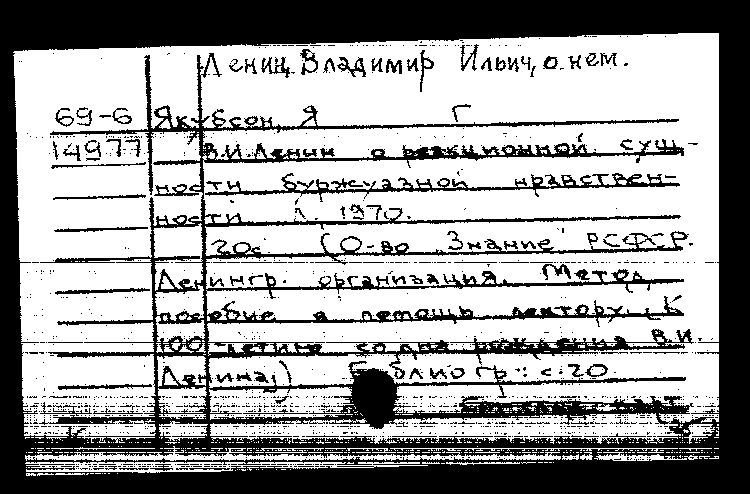 Ленин, Владимир Ильич, о нем.
69-6 Якубсон, Я Г
14977 В.И.Ленин о реакционной сущ-
ности буржуазной нравствен-
ности Л, 1970.
20с (О-во "Знание" РСФСР.
Ленингр. организация. Метод.
пособие в помощь лектору. К
100-летию со дня рождения В.И.
Ленина) Библиогр.: с.20